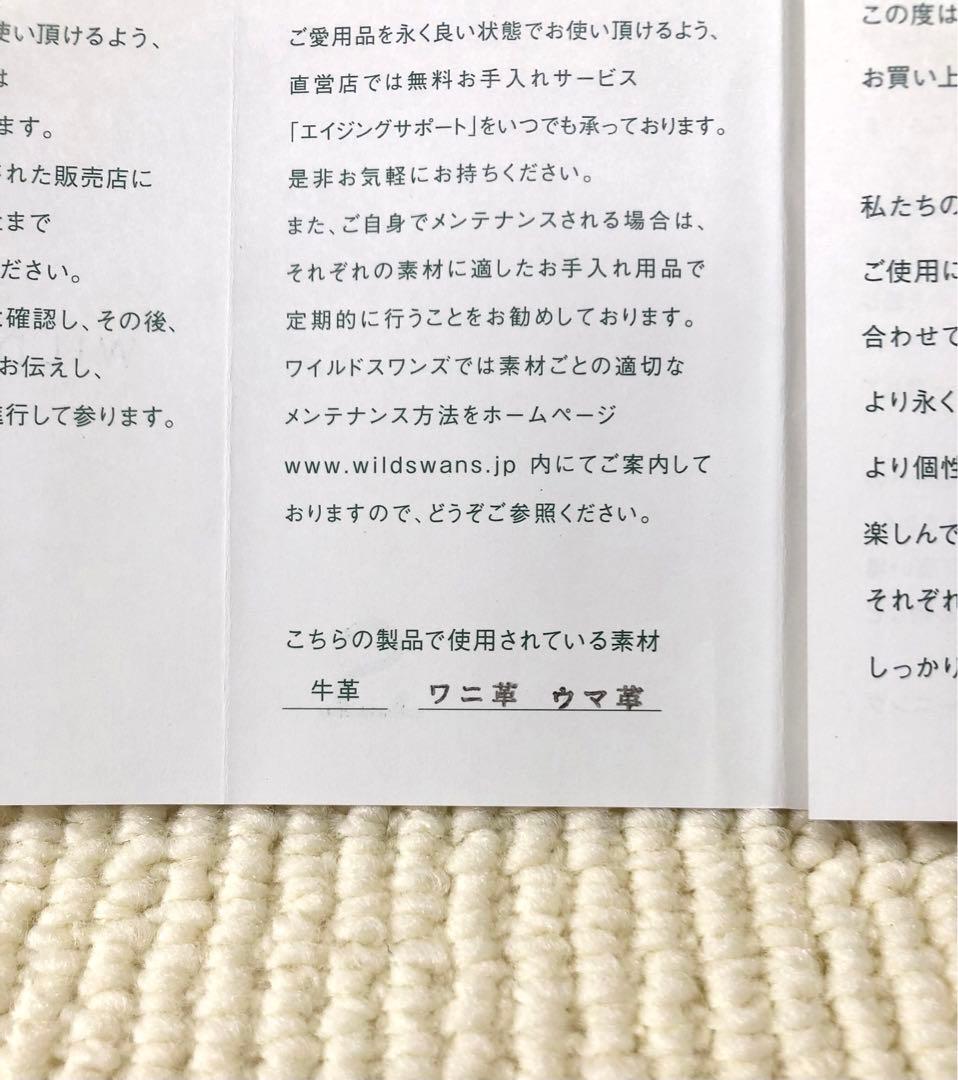 使い頂けるよう、
は
ます。
された販売店に
まで
ださい。
に確認し、その後、
お伝えし、
進行して参ります。
ご愛用品を永く良い状態でお使い頂けるよう、
直営店では無料お手入れサービス
「エイジングサポート」をいつでも承っております。
是非お気軽にお持ちください。
また、ご自身でメンテナンスされる場合は、
それぞれの素材に適したお手入れ用品で
定期的に行うことをお勧めしております。
ワイルドスワンズでは素材ごとの適切な
メンテナンス方法をホームページ
www.wildswans.jp 内にてご案内して
おりますので、どうぞご参照ください。
こちらの製品で使用されている素材
牛革 ワニ革 ウマ革
この度は
お買い上
私たちの
ご使用に
合わせて
より永く
より個性
楽しんで
それぞれ
しっかり